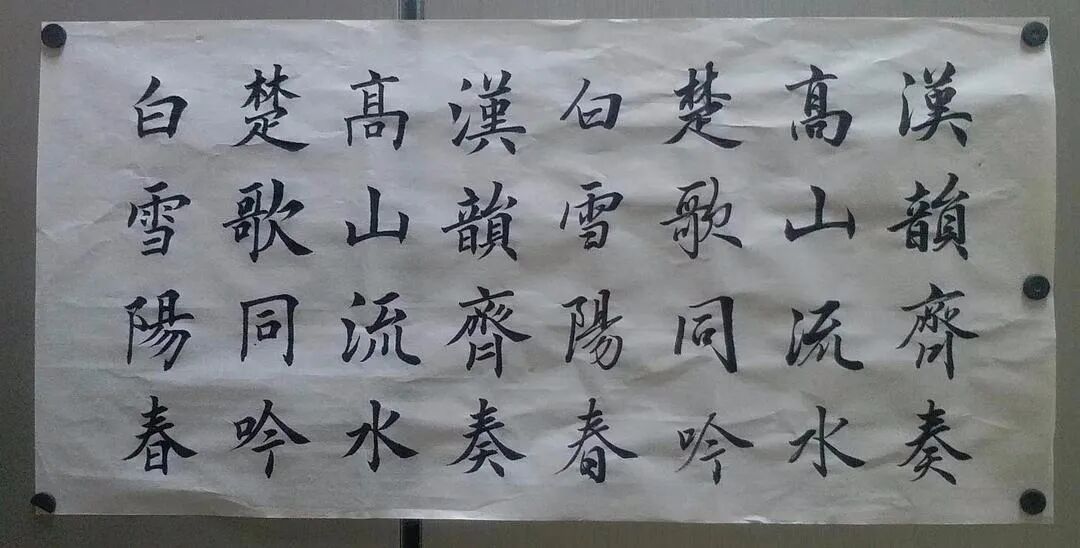 漢韻齊奏
高山流水
楚歌同吟
白雪陽春
漢韻齊奏
高山流水
楚歌同吟
白雪陽春